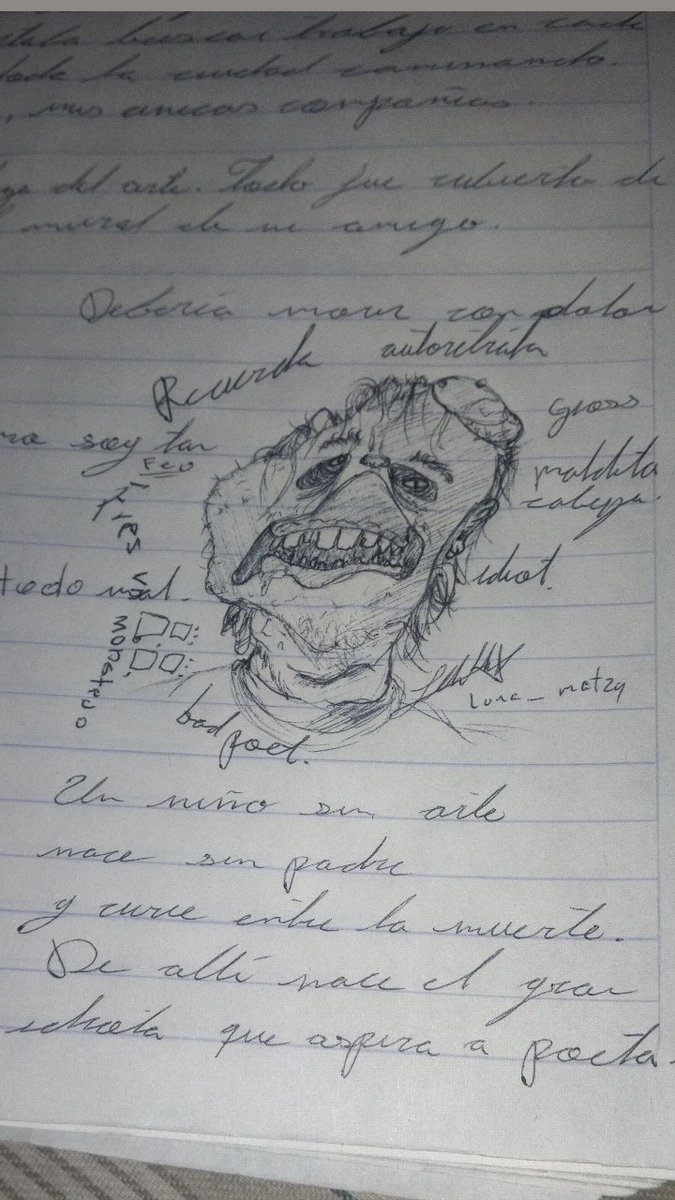 buscar trabajo en cada
toda la ciudad caminando.
, mis unicas compañias.
del arte. Todo fue cubierto de
mural de mi amigo.
Debería morir con dolor
Recuerda autoretrato
gross
soy tan
FEO
maldita
cabeza.
idiot.
todo mal.
monstruo
luna_matzq
bad poet.
Un niño sin arte
nace sin padre
y curve entre la muerte.
De allí nace el gran
idiota que aspira a poeta.